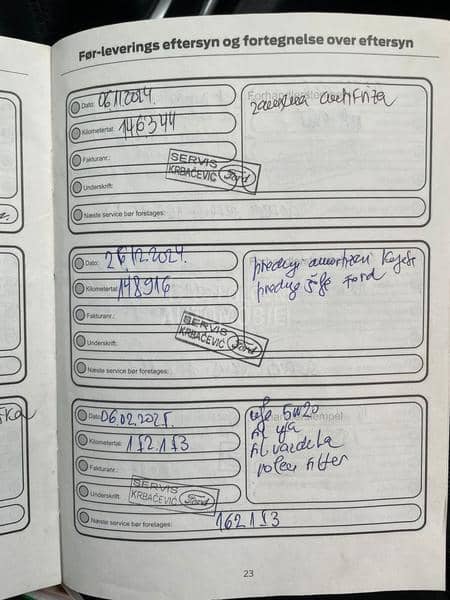 Før-leverings eftersyn og fortegnelse over eftersyn
Dato: 06.11.2024.
Kilometertal: 146344
Fakturanr.:
Underskrift:
Næste service bør foretages:
zamjena antifriza
SERVIS
KRBAČEVIĆ Ford
Dato: 26.12.2024.
Kilometertal: 148916
Fakturanr.:
Underskrift:
Næste service bør foretages:
prednji
prednje Ford
SERVIS
KRBAČEVIĆ Ford
Dato: 06.02.2025.
Kilometertal: 152153
Fakturanr.:
Underskrift:
Næste service bør foretages: 162153
ulje 5W20
fil ulja
fil vazduha
polen filter
SERVIS
KRBAČEVIĆ Ford
23